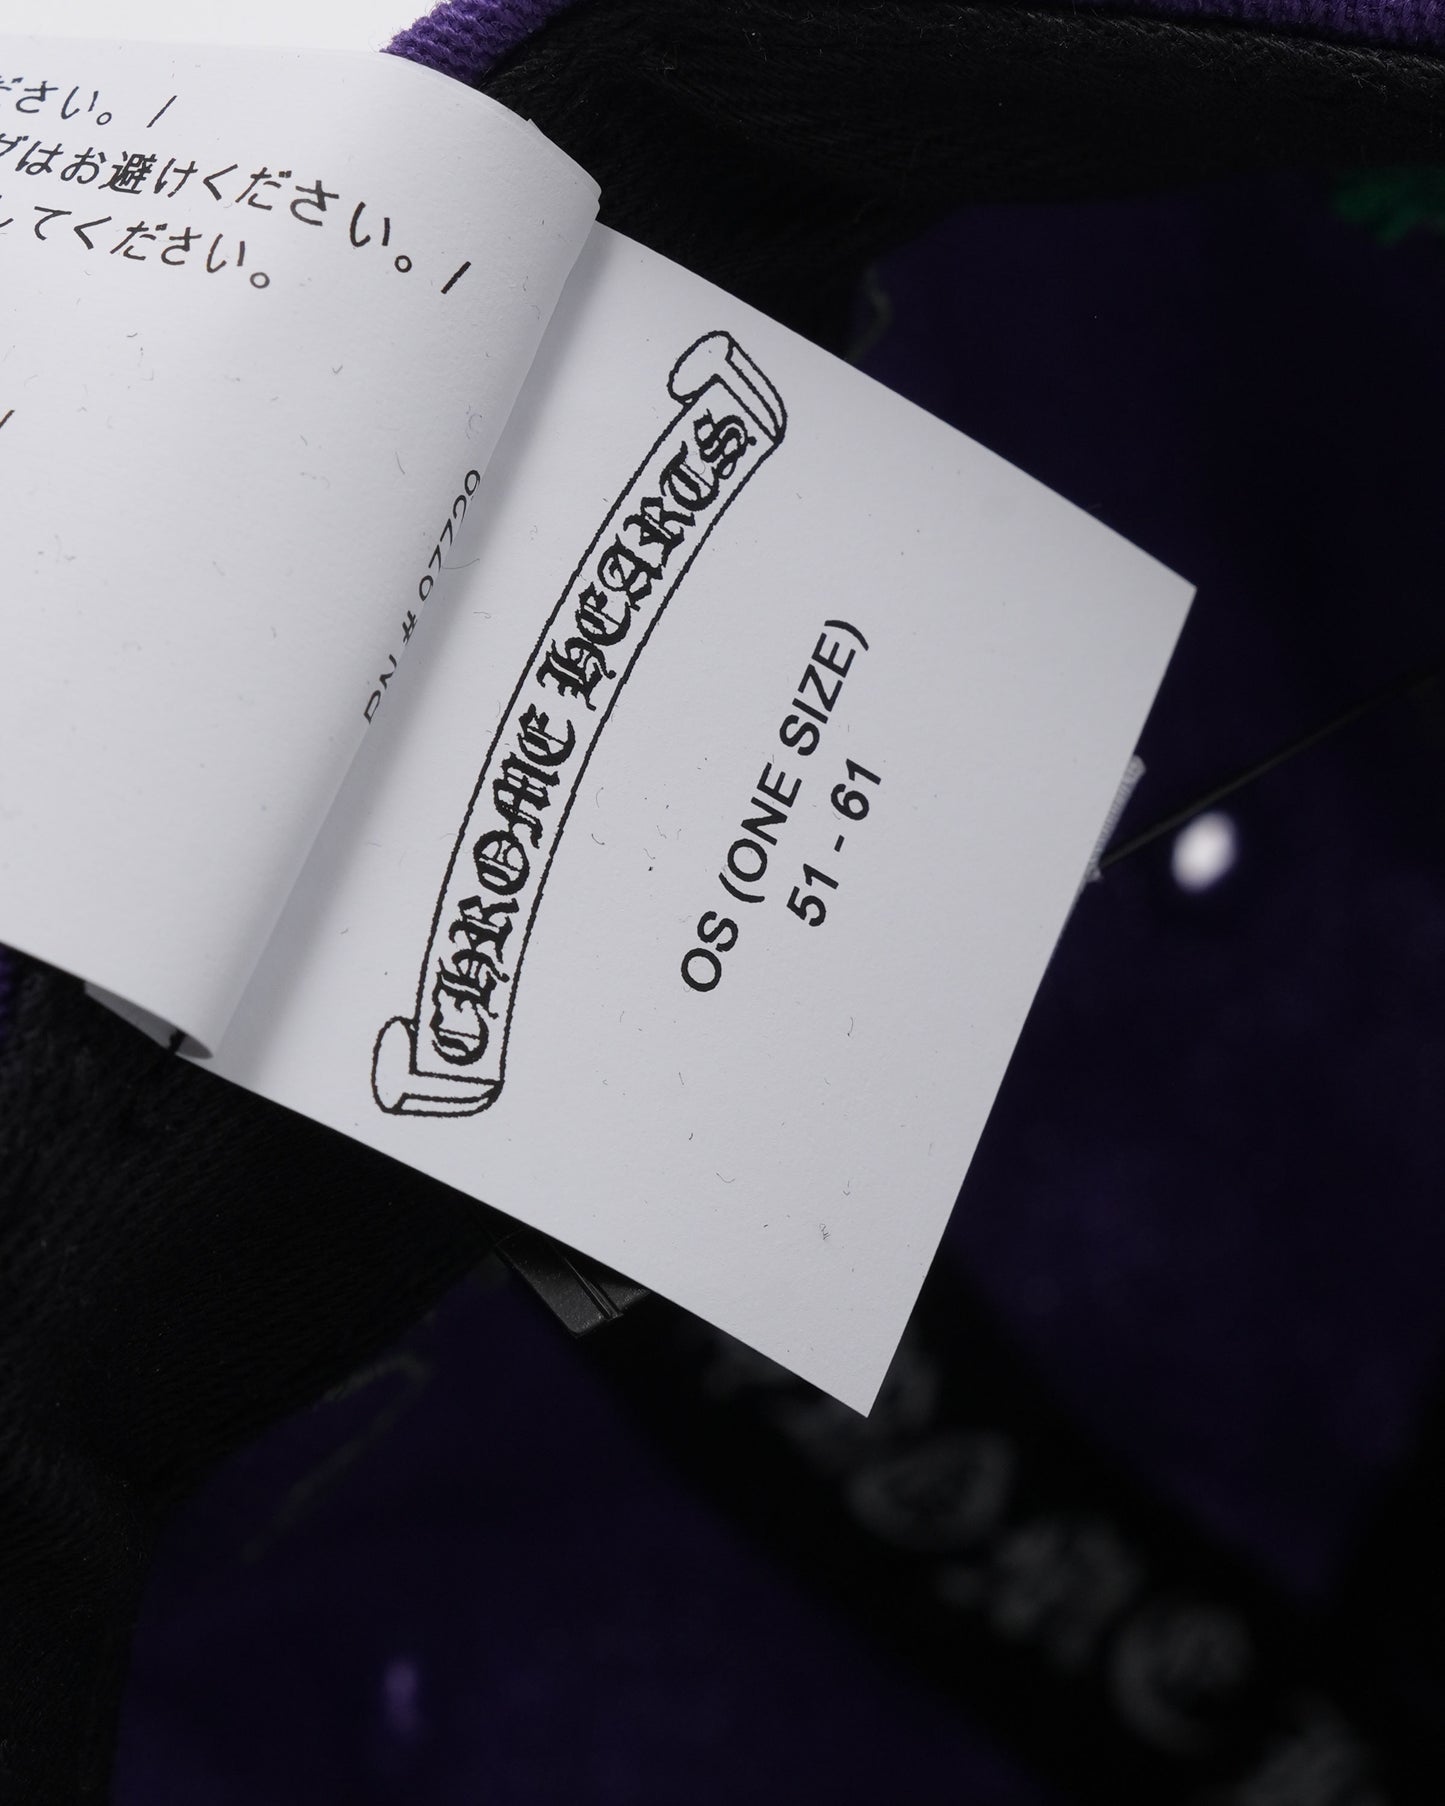 ださい。/
グはお避けください。/
してください。
/
CHROME HEARTS
OS (ONE SIZE)
51 - 61